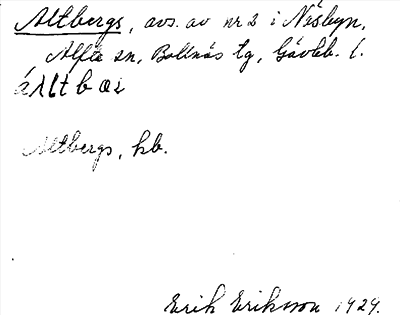 Altbergs, avs. av nr 2 i Näsbyn,
Alfta sn, Bollnäs tg, Gävleb. l.
Altbergs, hb.
Erik Eriksson 1929.